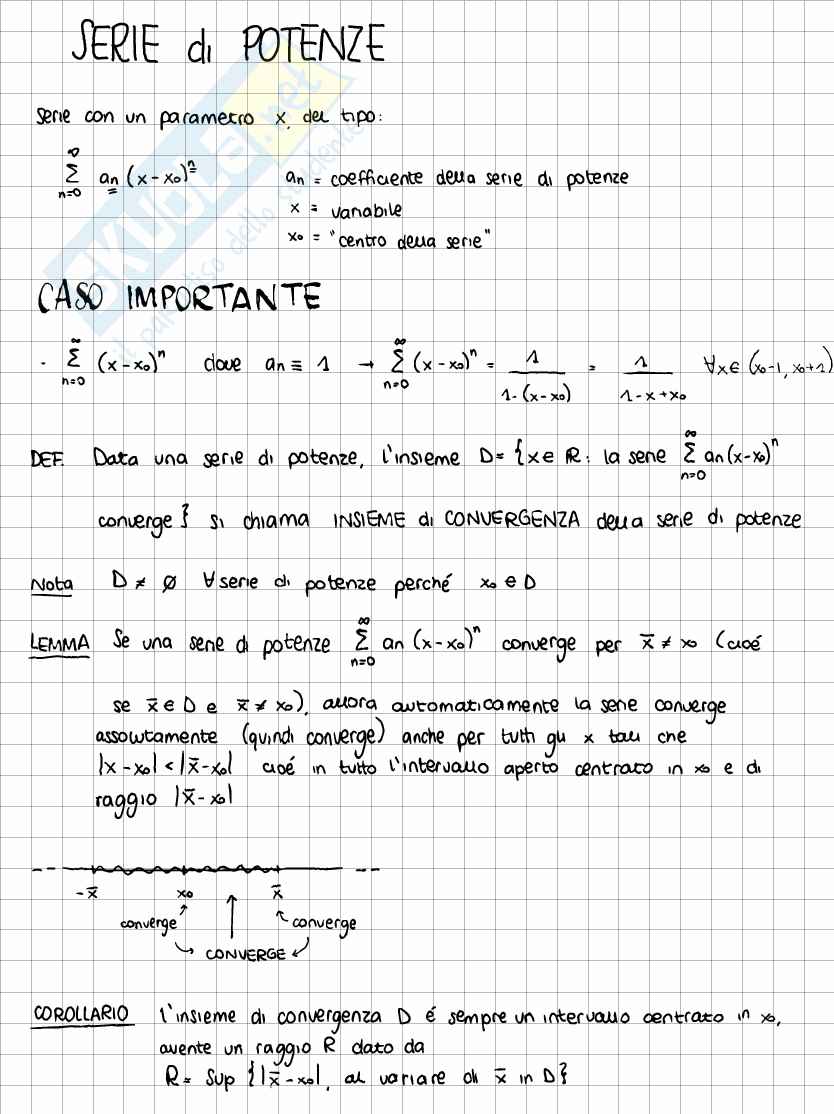 SERIE di POTENZE
Serie con un parametro x, del tipo:
∞
∑ an (x-x₀)ⁿ an = coefficiente della serie di potenze
n=0
x = variabile
x₀ = "centro della serie"
CASO IMPORTANTE
∞ ∞
· ∑ (x-x₀)ⁿ dove an ≡ 1 → ∑ (x-x₀)ⁿ = 1 / 1-(x-x₀) = 1 / 1-x+x₀ ∀x∈ (x₀-1, x₀+1)
n=0 n=0
∞
DEF. Data una serie di potenze, l'insieme D= {x∈ ℝ: la serie ∑ an(x-x₀)ⁿ
n=0
converge} si chiama INSIEME di CONVERGENZA della serie di potenze
Nota D ≠ ø ∀ serie di potenze perché x₀ ∈ D
∞
LEMMA Se una serie di potenze ∑ an (x-x₀)ⁿ converge per x̄ ≠ x₀ (cioé
n=0
se x̄ ∈ D e x̄ ≠ x₀), allora automaticamente la serie converge
assolutamente (quindi converge) anche per tutti gli x tali che
|x-x₀| < |x̄-x₀| cioé in tutto l'intervallo aperto centrato in x₀ e di
raggio |x̄-x₀|
-x̄ x₀ x̄
converge converge
CONVERGE
COROLLARIO l'insieme di convergenza D é sempre un intervallo centrato in x₀,
avente un raggio R dato da
R= Sup {|x̄-x₀|, al variare di x̄ in D}
SKUOLA.net
il paradiso dello studente